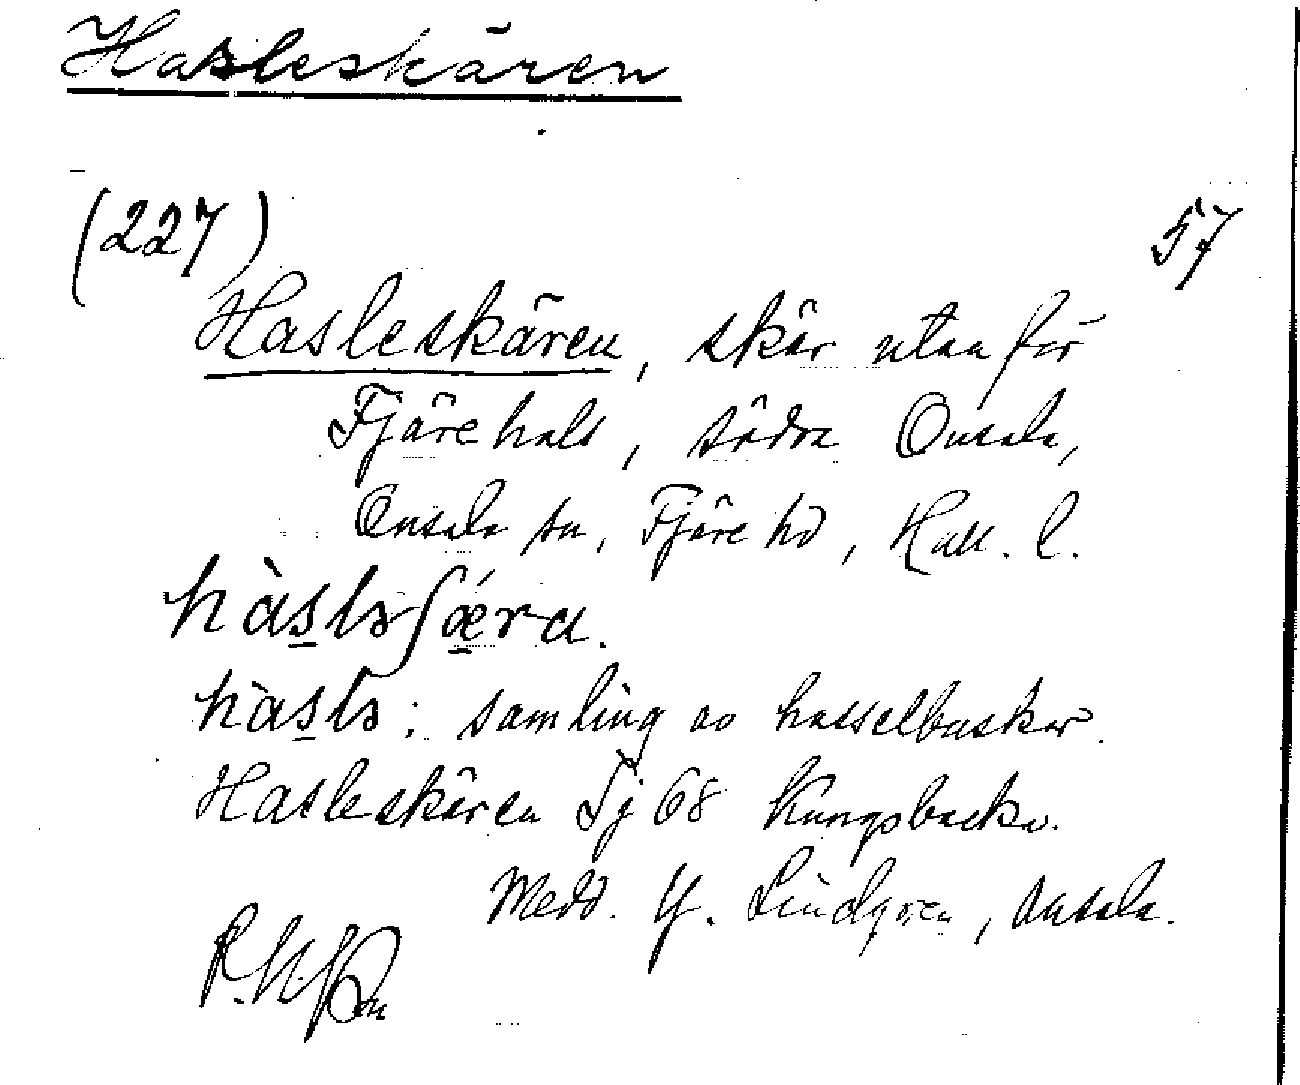 Hasleskären
(227) 57
Hasleskären, skär utanför
Fjärehals, södra Onsala,
Onsala sn, Fjäre hd, Hall. l.
hàs̠lə ʃǽ̠ra.
hàs̠lə: samling av hasselbuskar.
Hasleskären Sj 68 Kungsbacka.
Medd. Y. Lindgren, Onsala.